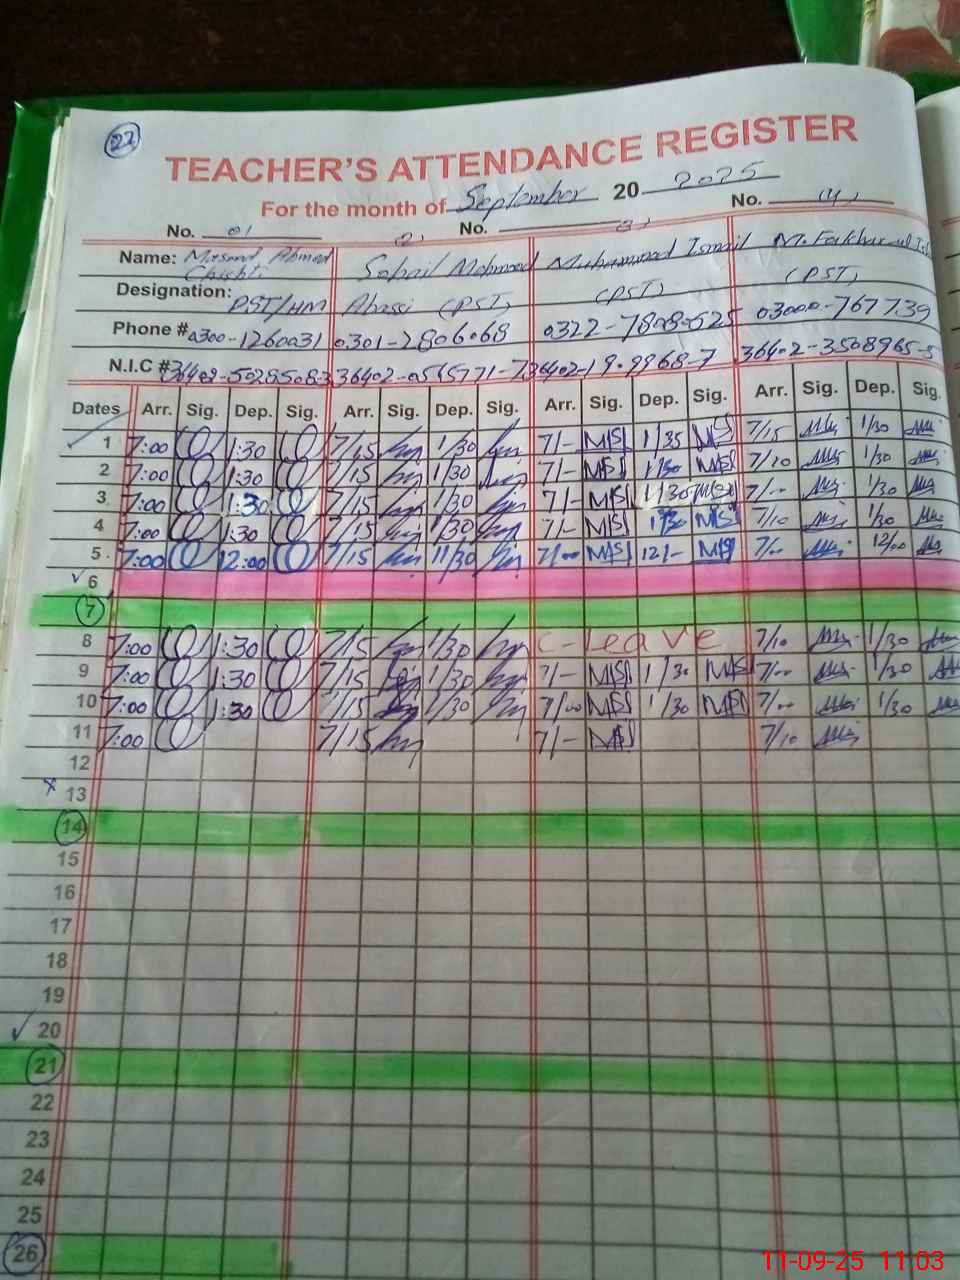 22
TEACHER'S ATTENDANCE REGISTER
For the month of September 20 2025
No. 01 (2) No. (3) No. (4)
Name: Masood Ahmed Sohail Mehmood Muhammad Ismail M. Fakhar ul
Chishti
Designation: PST/HM Abassi (PST) (PST) (PST)
Phone # 0300-1260031 0301-2806068 0322-7808525 03000-767739
N.I.C #
Dates Arr. Sig. Dep. Sig. Arr. Sig. Dep. Sig. Arr. Sig. Dep. Sig. Arr. Sig. Dep. Sig.
1 7:00 1:30 7/15 1/30 7/- MSI 1/35 MSI 7/15 1/30
2 7:00 1:30 7/15 1/30 7/- MSI 1/30 MSI 7/10 1/30
3 7:00 1:30 7/15 1/30 7/- MSI 1/30 MSI 7/00 1/30
4 7:00 1:30 7/15 1/30 7/- MSI 1/30 MSI 7/10 1/30
5 7:00 12:00 7/15 11/30 7/00 MSI 12/- MSI 7/00 12/00
6
7
8 7:00 1:30 7/15 1/30 C-Leave 7/10 1/30
9 7:00 1:30 7/15 1/30 7/- MSI 1/30 MSI 7/00 1/30
10 7:00 1:30 7/15 1/30 7/00 MSI 1/30 MSI 7/00 1/30
11 7:00 7/15 7/- MSI 7/10
12
13
14
15
16
17
18
19
20
21
22
23
24
25
26
11-09-25 11:03